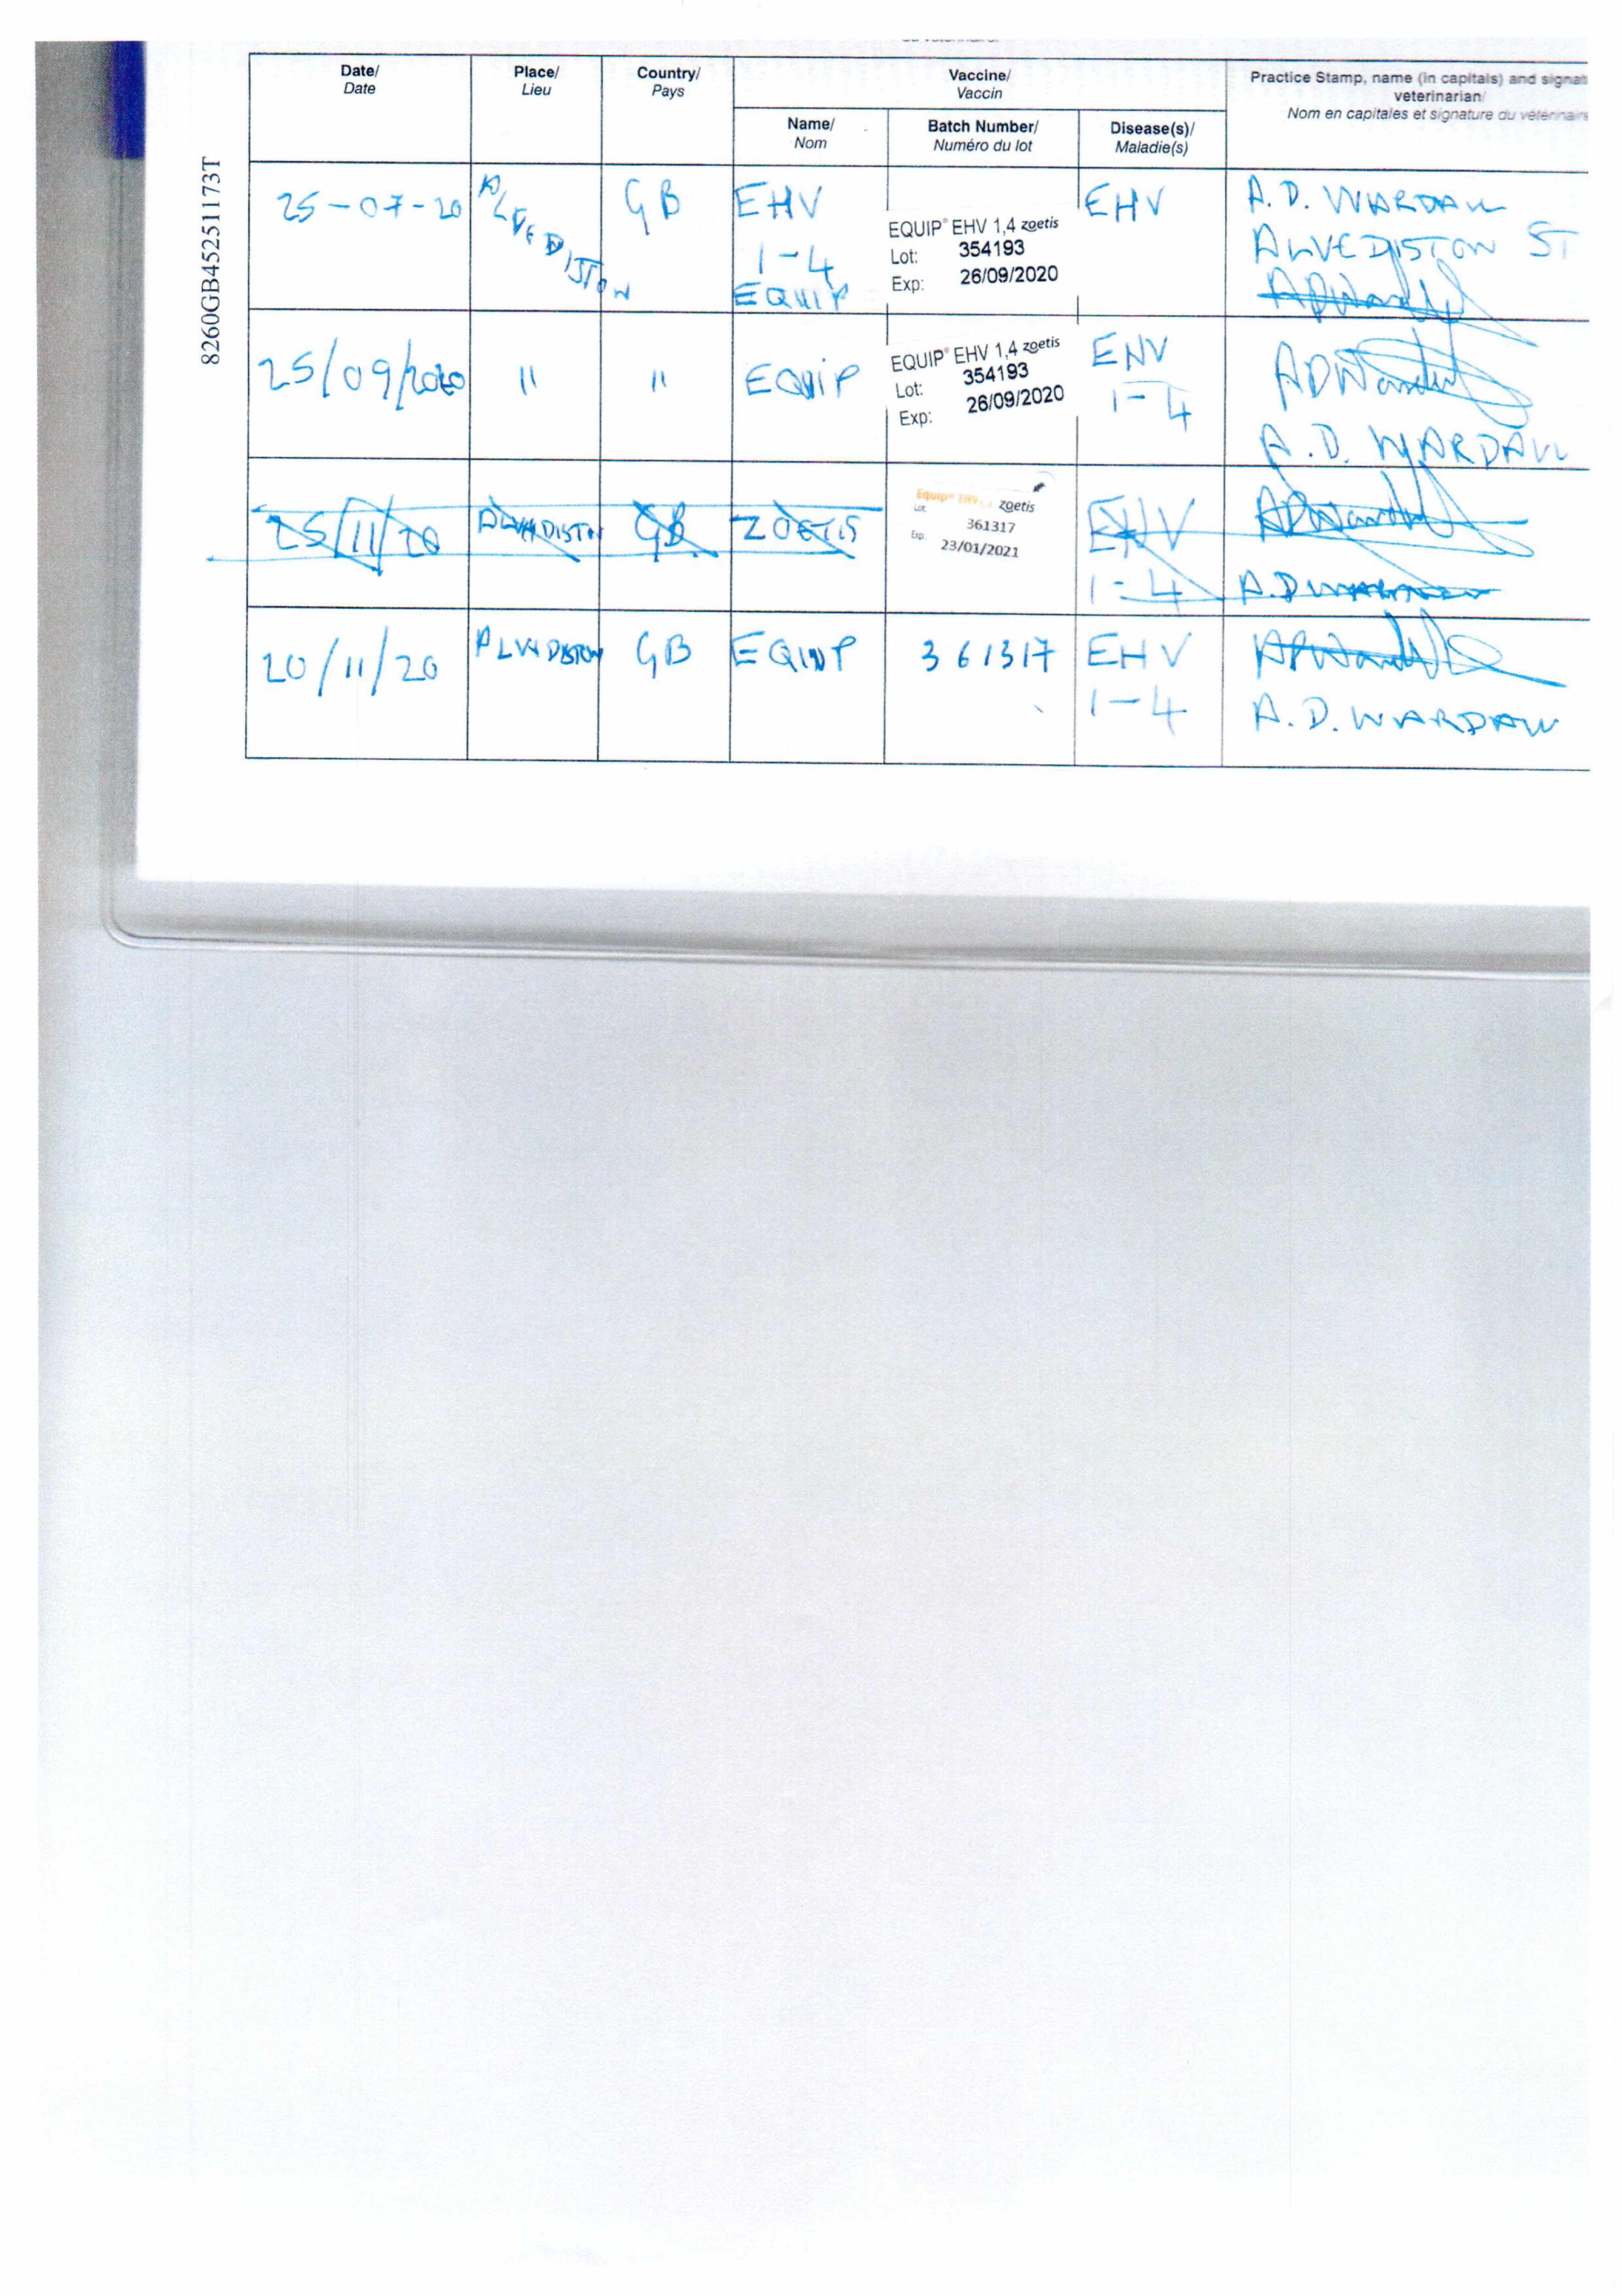 8260GB452511173T
Date/
Date
Place/
Lieu
Country/
Pays
Vaccine/
Vaccin
Practice Stamp, name (in capitals) and
veterinarian/
Nom en capitales et signature du vétérinaire
Name/
Nom
Batch Number/
Numéro du lot
Disease(s)/
Maladie(s)
25-07-20
ALVEDISTON
GB
EHV
1-4
EQUIP
EQUIP® EHV 1,4 zoetis
Lot: 354193
Exp: 26/09/2020
EHV
A.D. WARDALL
ALVEDISTON ST
25/09/2020
"
"
EQUIP
EQUIP® EHV 1,4 zoetis
Lot: 354193
Exp: 26/09/2020
EHV
1-4
A.D. WARDALL
25/11/20
ALVEDISTON
GB
ZOETIS
Equip® EHV 1,4 zoetis
Lot: 361317
Exp. 23/01/2021
EHV
1-4
20/11/20
ALVEDISTON
GB
EQUIP
361317
EHV
1-4
A.D. WARDALL